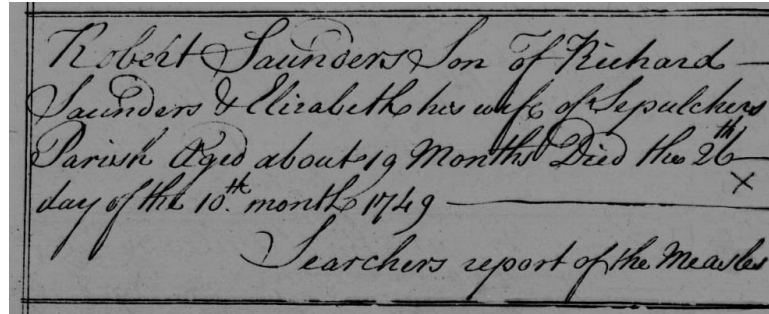 Robert Saunders Son of Richard —
Saunders & Elizabeth his wife of Sepulchers
Parish Aged about 19 Months Died the 26th —
day of the 10th. month 1749 — ×
Searchers report of the Measles